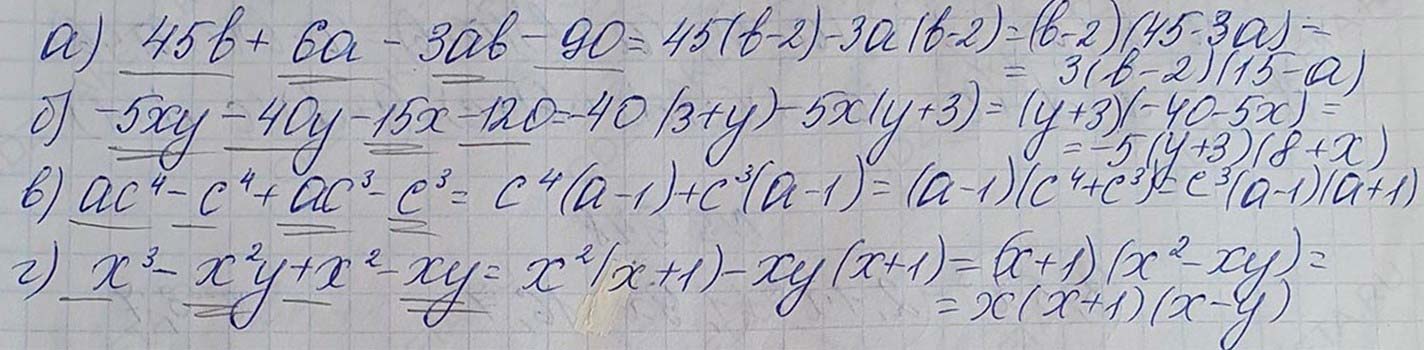 а) 45в + 6а - 3ав - 90 = 45(в-2) - 3а(в-2) = (в-2)(45-3а) =
= 3(в-2)(15-а)
б) -5xy - 40y - 15x - 120 = -40(3+y) - 5x(y+3) = (y+3)(-40-5x) =
= -5(y+3)(8+x)
в) ac⁴ - c⁴ + ac³ - c³ = c⁴(a-1) + c³(a-1) = (a-1)(c⁴+c³) = c³(a-1)(a+1)
г) x³ - x²y + x² - xy = x²(x+1) - xy(x+1) = (x+1)(x²-xy) =
= x(x+1)(x-y)